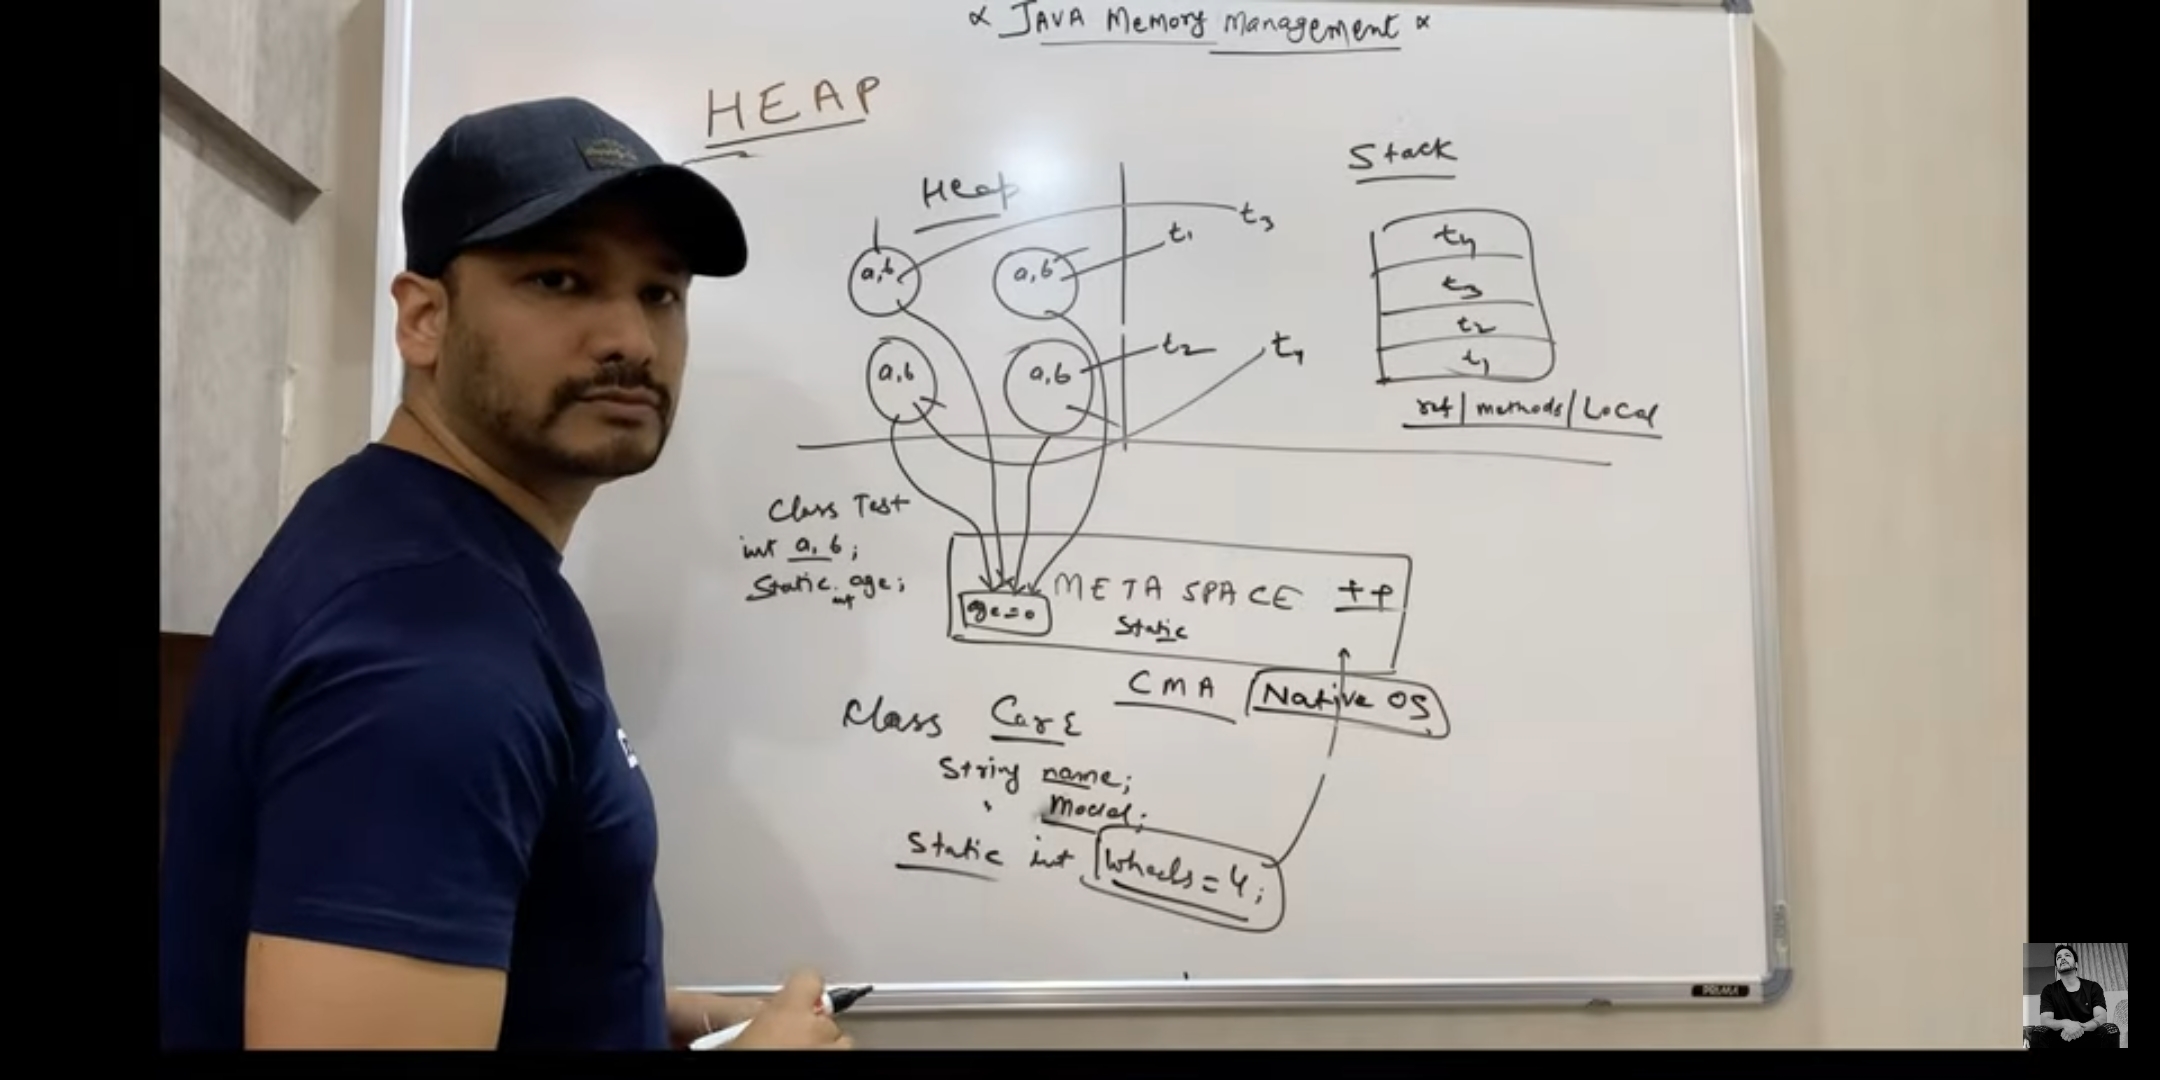 JAVA Memory Management
HEAP
Heap
Stack
t3
t1
a,b
a,b
t2
t4
a,b
a,b
t4
t3
t2
t1
ref/methods/Local
Class Test
int a, b;
Static int age;
META SPACE
age=0
Static
CMA
Native OS
Class Car {
String name;
" Model;
Static int wheels = 4;
PRIMA